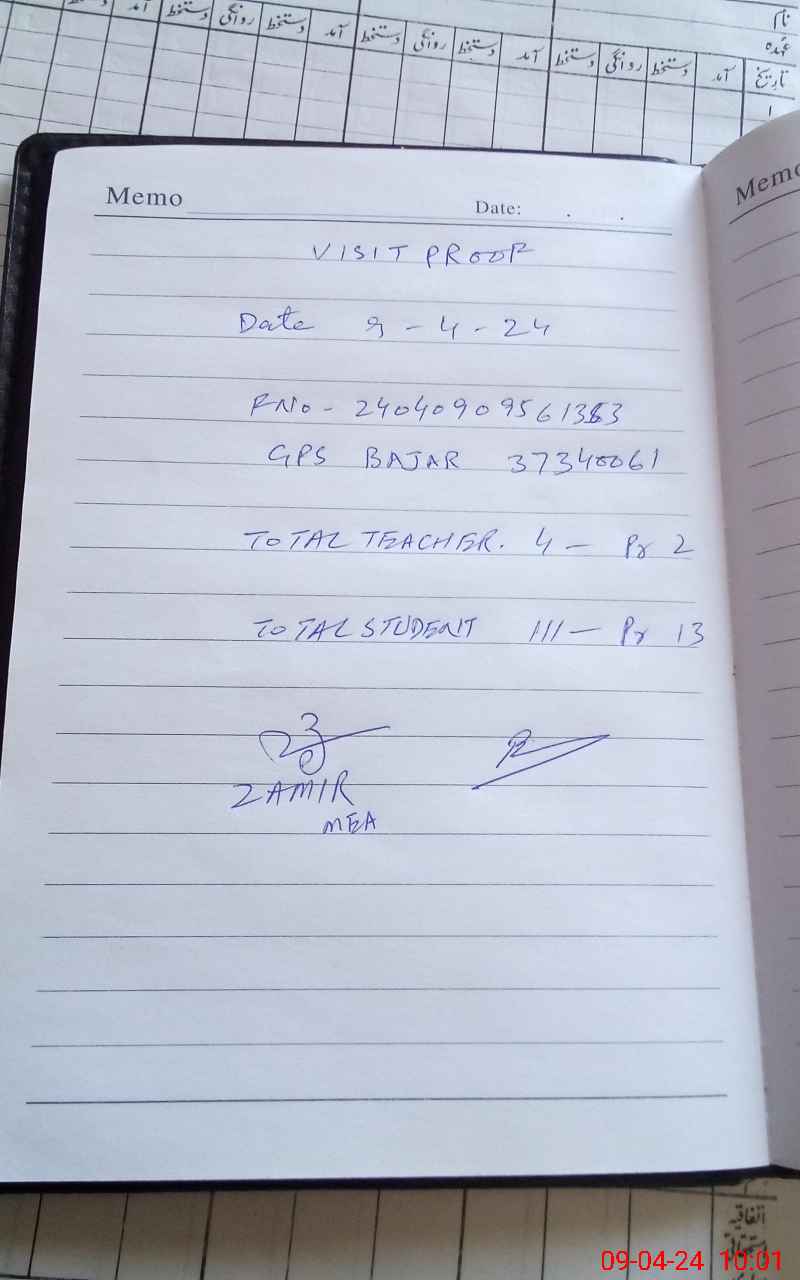 نام
عہدہ
دستخط آمد دستخط روانگی دستخط آمد دستخط روانگی دستخط آمد تاریخ
۱
Memo Date: . .
Memo
VISIT PROOF
Date 9-4-24
F No - 240409095613
GPS BAJAR 37340061
TOTAL TEACHER. 4 - Pr 2
TOTAL STUDENT 111 - Pr 13
ZAMIR
MEA
اتفاقیہ
استحقاقی
09-04-24 10:01